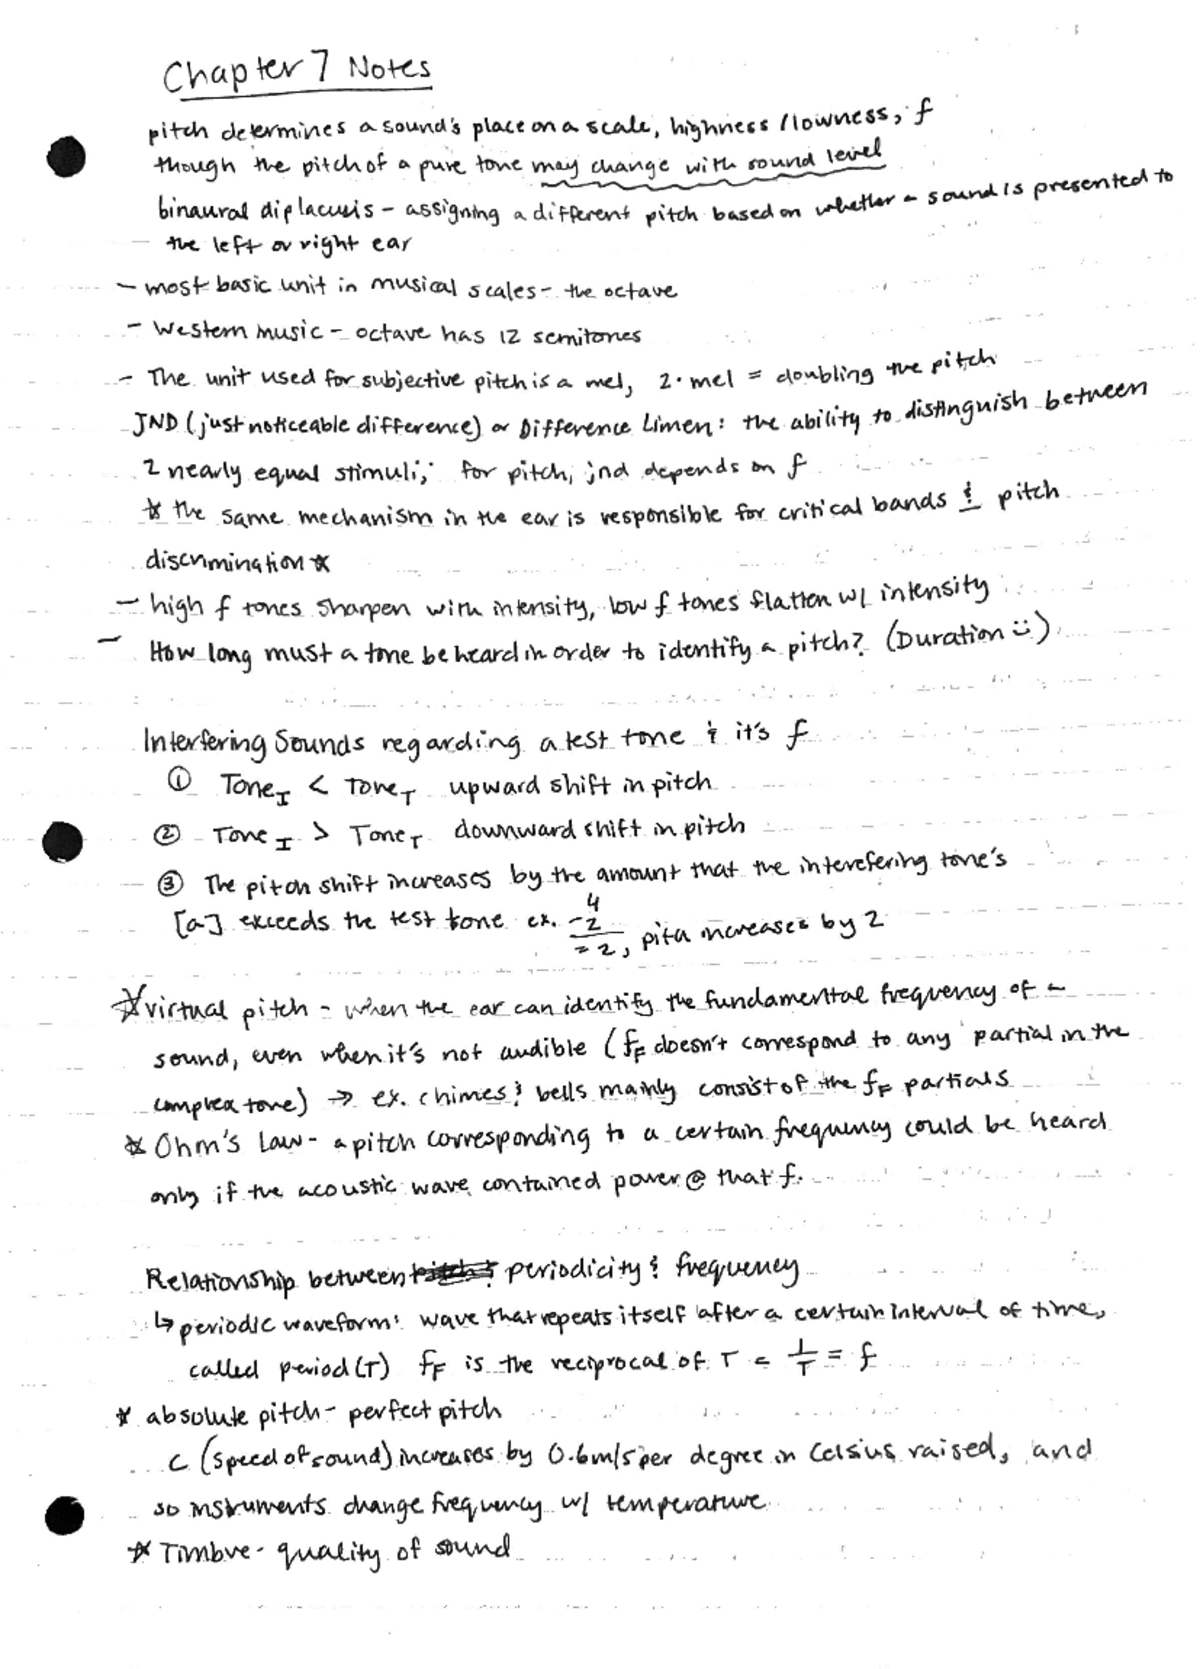 Chapter 7 Notes
pitch determines a sound's place on a scale, highness / lowness, f
though the pitch of a pure tone may change with sound level
binaural diplacusis - assigning a different pitch based on whether a sound is presented to
the left or right ear
- most basic unit in musical scales - the octave
- Western music - octave has 12 semitones
- The unit used for subjective pitch is a mel, 2·mel = doubling the pitch
JND (just noticeable difference) or Difference Limen: the ability to distinguish between
2 nearly equal stimuli; for pitch, jnd depends on f
☆ the same mechanism in the ear is responsible for critical bands & pitch
discrimination ☆
- high f tones sharpen with intensity, low f tones flatten w/ intensity
- How long must a tone be heard in order to identify a pitch? (Duration :))
Interfering Sounds regarding a test tone & it's f
① Tone_I < Tone_T upward shift in pitch
② Tone_I > Tone_T downward shift in pitch
③ The pitch shift increases by the amount that the interefering tone's
[a] exceeds the test tone ex. 4 -2 = 2, pitch increases by 2
☆ virtual pitch - when the ear can identify the fundamental frequency of a
sound, even when it's not audible (f_F doesn't correspond to any partial in the
complex tone) → ex. chimes & bells mainly consist of the f_F partials
☆ Ohm's Law - a pitch corresponding to a certain frequency could be heard
only if the acoustic wave contained power @ that f.
Relationship between periodicity & frequency
↳ periodic waveform: wave that repeats itself after a certain interval of time,
called period (T) f_F is the reciprocal of T = 1/T = f
☆ absolute pitch - perfect pitch
c (speed of sound) increases by 0.6m/s per degree in Celsius raised, and
so instruments change frequency w/ temperature
☆ Timbre - quality of sound